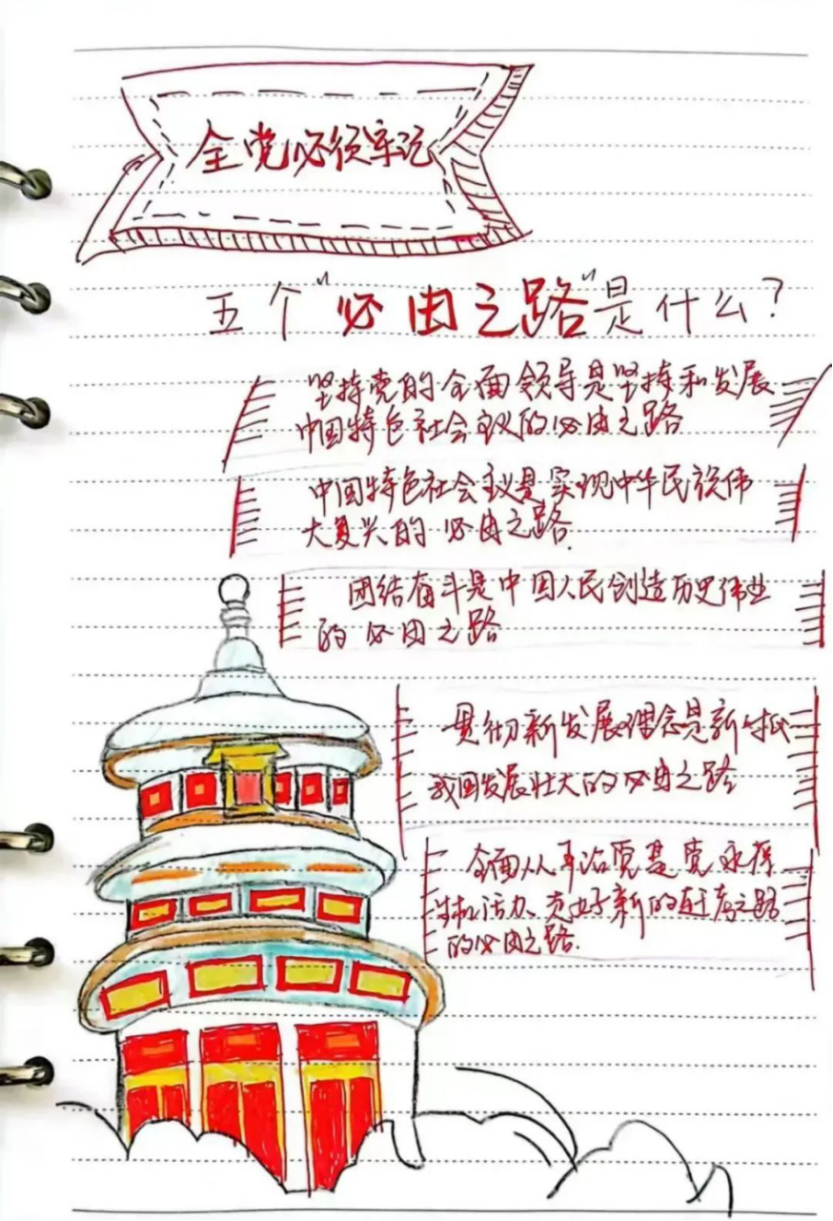 全党必须牢记
五个"必由之路"是什么?
坚持党的全面领导是坚持和发展
中国特色社会主议的必由之路
中国特色社会主议是实现中华民族伟
大复兴的必由之路.
团结奋斗是中国人民创造历史伟业
的必由之路
贯彻新发展理念是新时代
我国发展壮大的必由之路
全面从严治党是党永葆
生机活力、走好新的赶考之路
的必由之路.